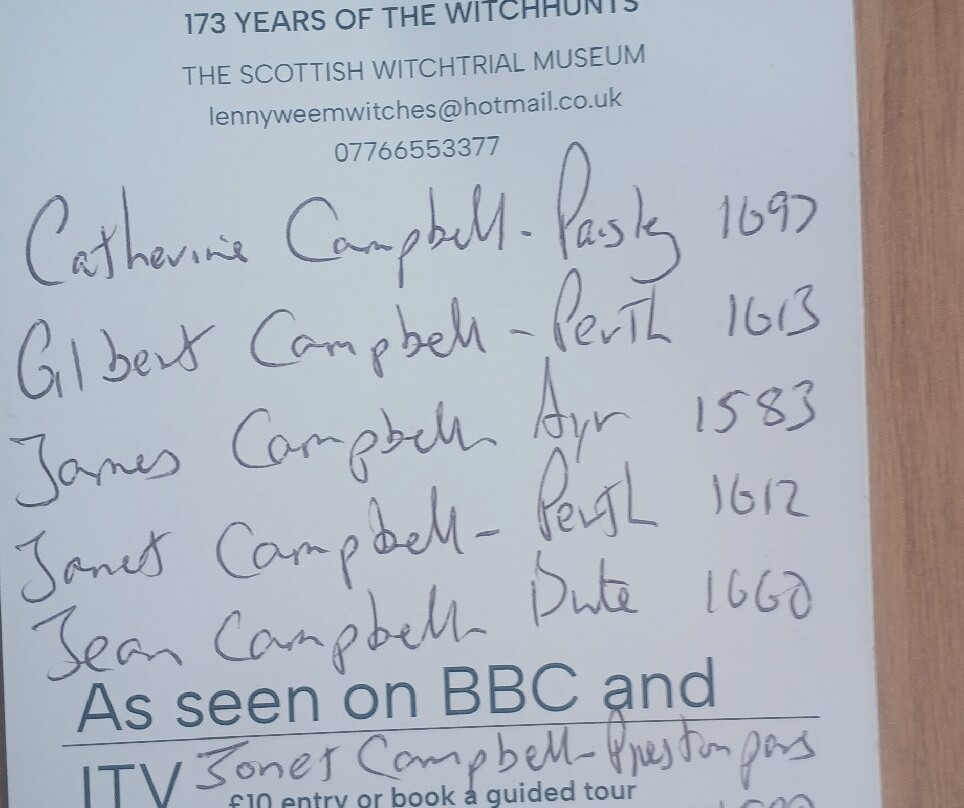 173 YEARS OF THE WITCHHUNTS
THE SCOTTISH WITCHTRIAL MUSEUM
lennyweemwitches@hotmail.co.uk
07766553377
Catherine Campbell - Paisley 1697
Gilbert Campbell - Perth 1613
James Campbell Ayr 1583
Janet Campbell - Perth 1612
Jean Campbell Bute 1660
As seen on BBC and
ITV Jonet Campbell - Prestonpans
£10 entry or book a guided tour